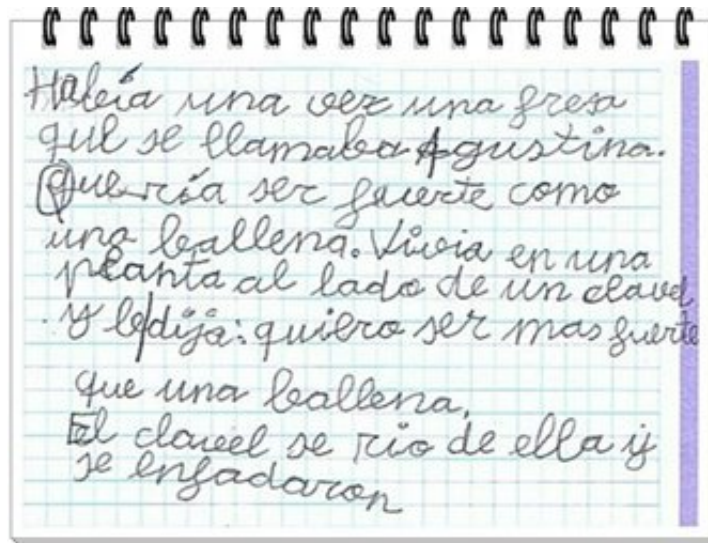 Había una vez una fresa
que se llamaba Agustina.
Quería ser fuerte como
una ballena. Vivia en una
planta al lado de un clavel
y le dija: quiero ser mas fuerte
que una ballena.
El clavel se rio de ella y
se enfadaron